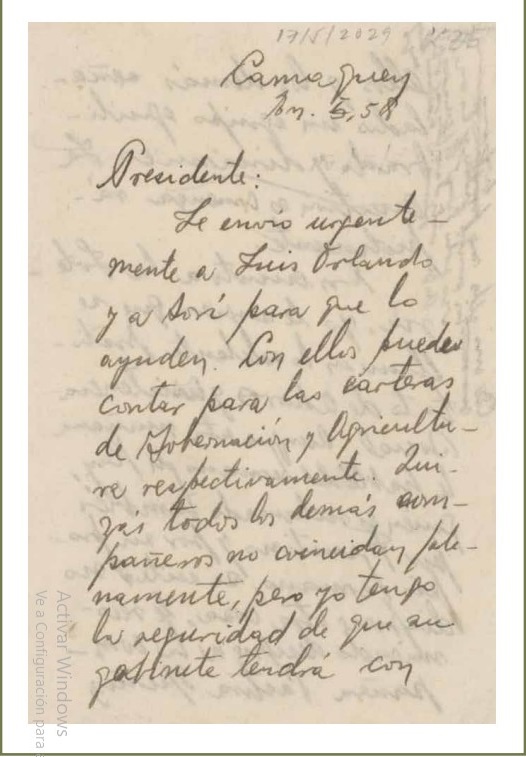 17/5/2029
Camaguey
En. 5, 58
Presidente:
Le envío urgente-
mente a Luis Orlando
y a Sorí para que lo
ayuden. Con ellos puedes
contar para las carteras
de Gobernación y Agricultu-
ra respectivamente. Qui-
zás todos los demás com-
pañeros no coincidan ple-
namente, pero yo tengo
la seguridad de que su
gabinete tendrá con
Activar Windows
Ve a Configuración para